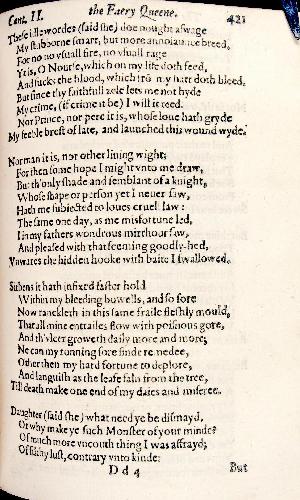 Cant. II. the Faery Queene. 421
These idle wordes (said she) doe nought aswage
My stubborne smart, but more annoiaunce breed,
For no no vsuall fire, no vsuall rage
Yt is, O Nourse, which on my life doth feed,
And suckes the blood, which frō my hart doth bleed.
But since thy faithfull zele lets me not hyde
My crime, (if crime it be) I will it reed.
Nor Prince, nor pere it is, whose loue hath gryde
My feeble brest of late, and launched this wound wyde.
Nor man it is, nor other liuing wight;
For then some hope I might vnto me draw,
But th'only shade and semblant of a knight,
Whose shape or person yet I neuer saw,
Hath me subiected to loues cruell law:
The same one day, as me misfortune led,
I in my fathers wondrous mirrhour saw,
And pleased with that seeming goodly-hed,
Vnwares the hidden hooke with baite I swallowed.
Sithens it hath infixed faster hold
Within my bleeding bowells, and so sore
Now ranckleth in this same fraile fleshly mould,
That all mine entrailes flow with poisnous gore,
And th'vlcer groweth daily more and more;
Ne can my ronning sore finde remedee,
Other then my hard fortune to deplore,
And languish as the leafe faln from the tree,
Till death make one end of my daies and miseree.
Daughter (said she) what need ye be dismayd,
Or why make ye such Monster of your minde?
Of much more vncouth thing I was affrayd;
Of filthy lust, contrary vnto kinde:
Dd 4 But